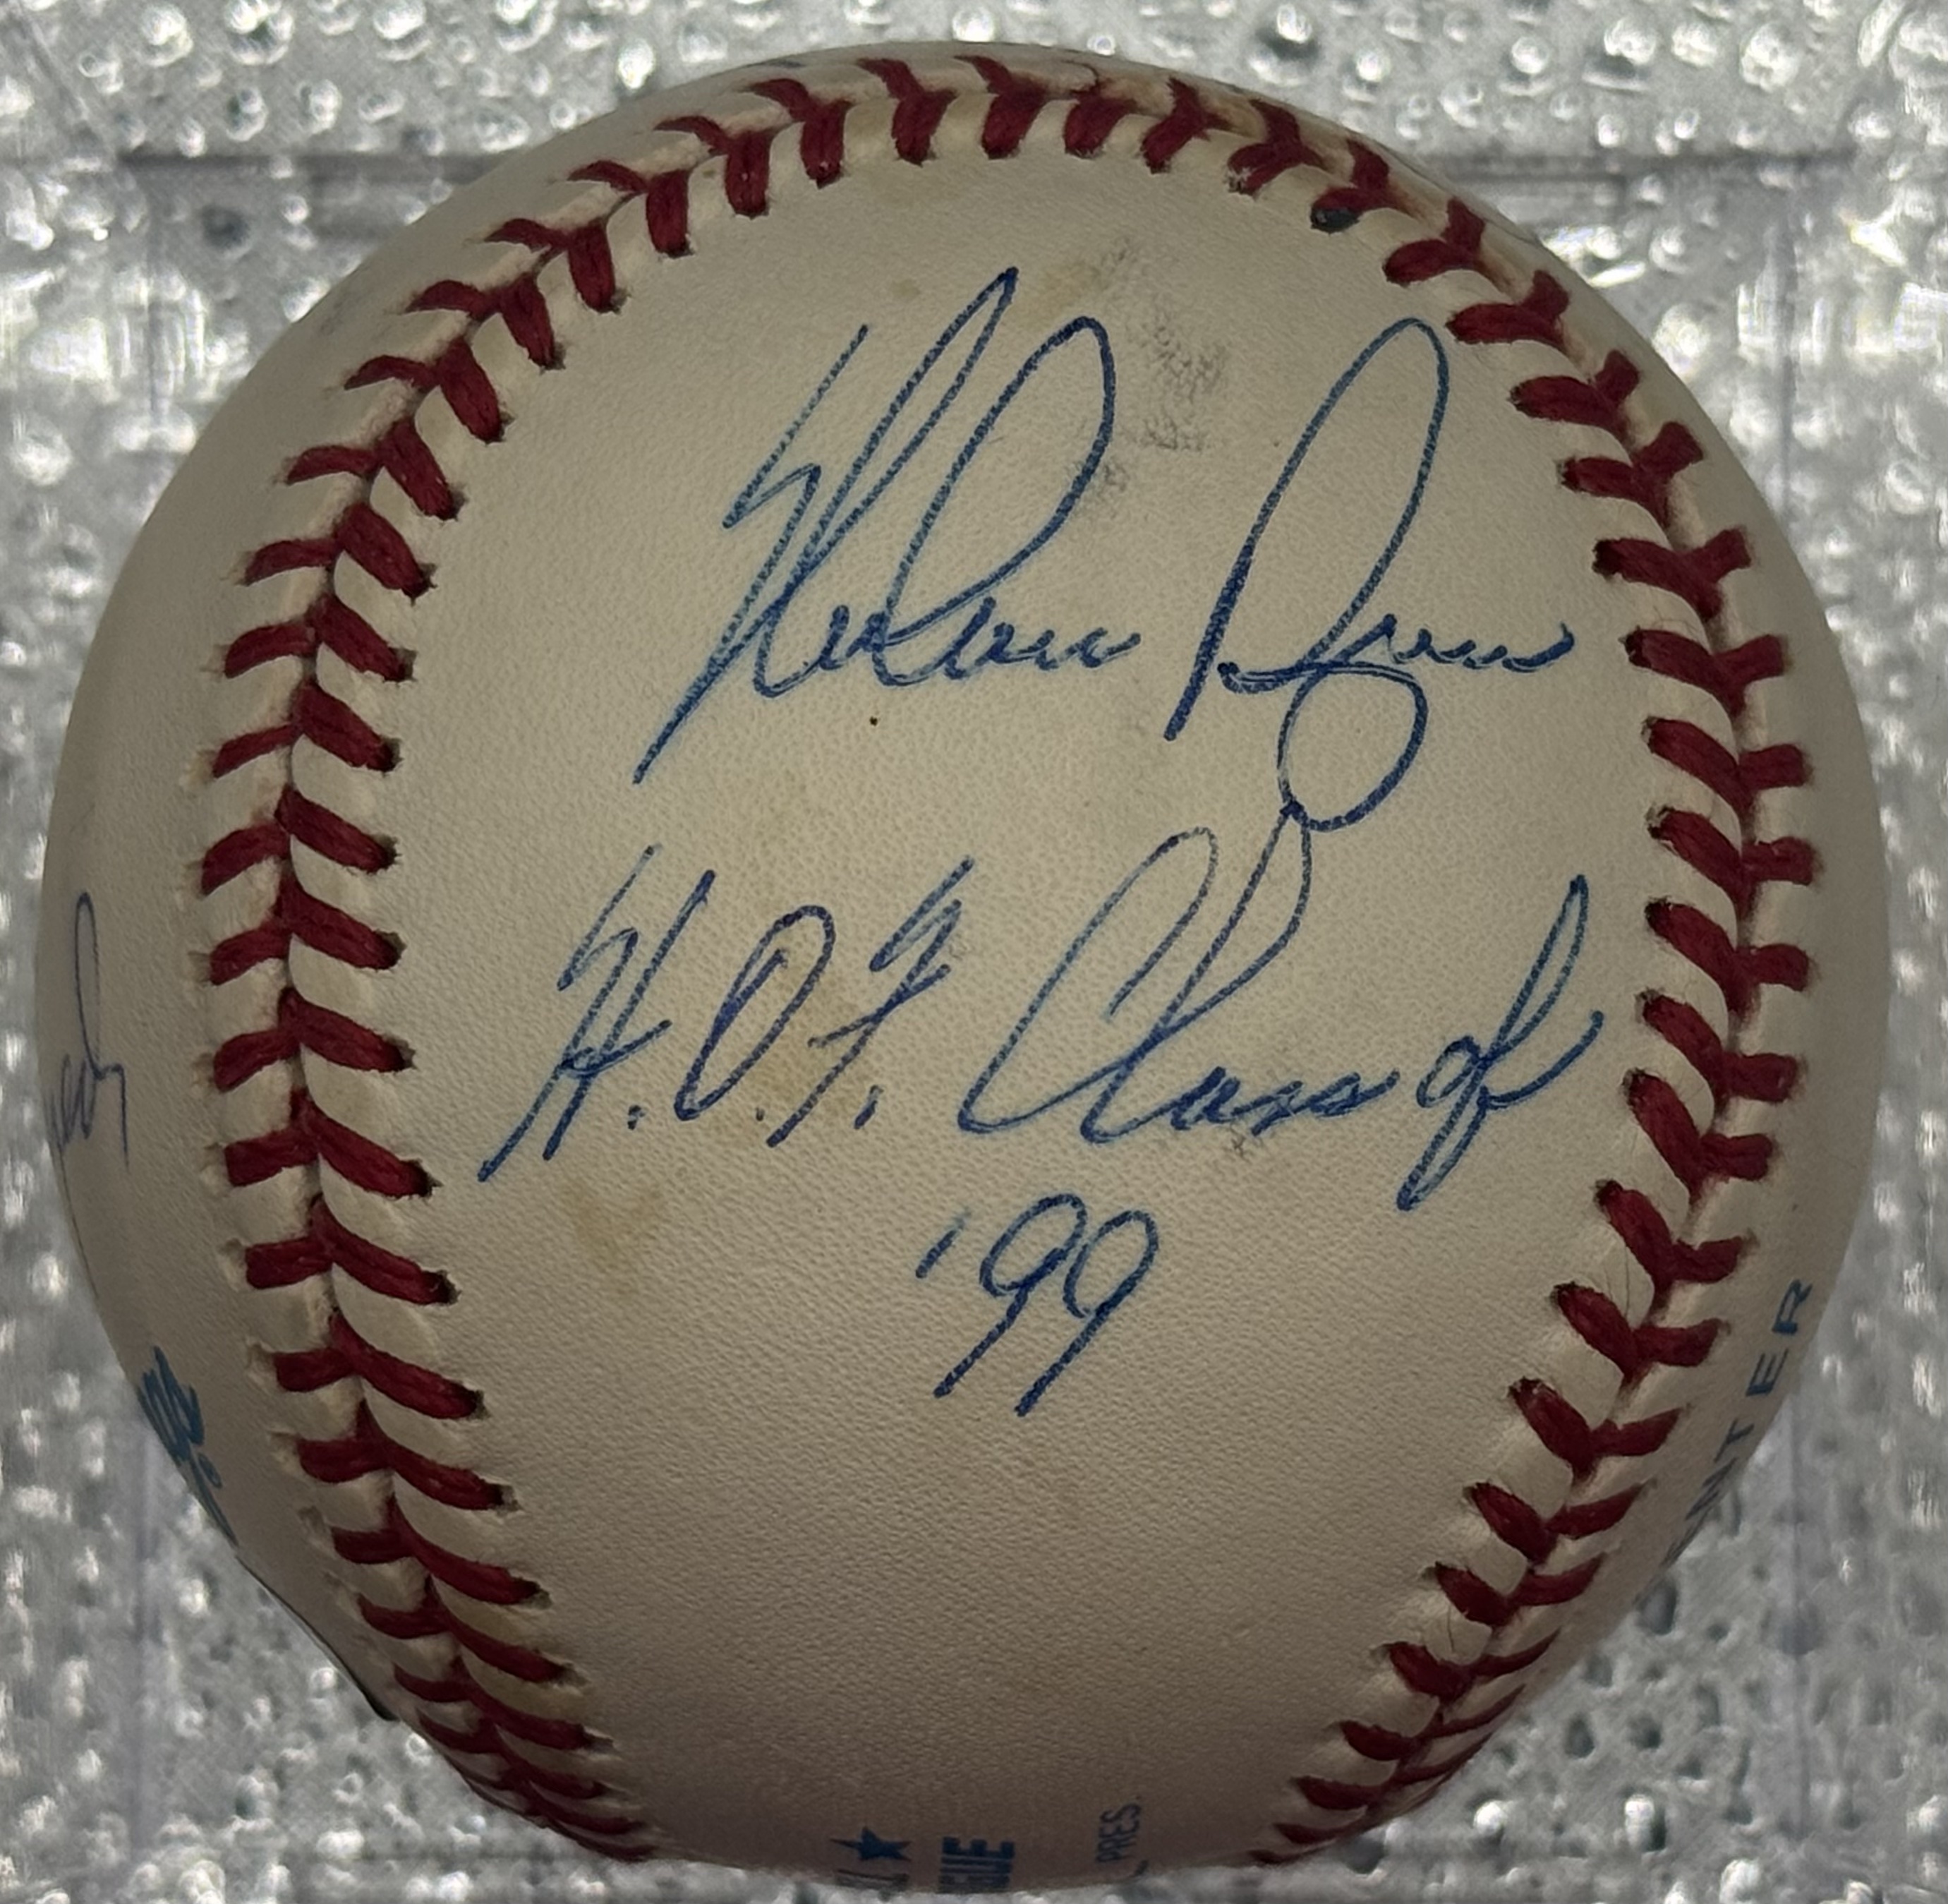 Nolan Ryan
H.O.F. Class of
'99
PRES.